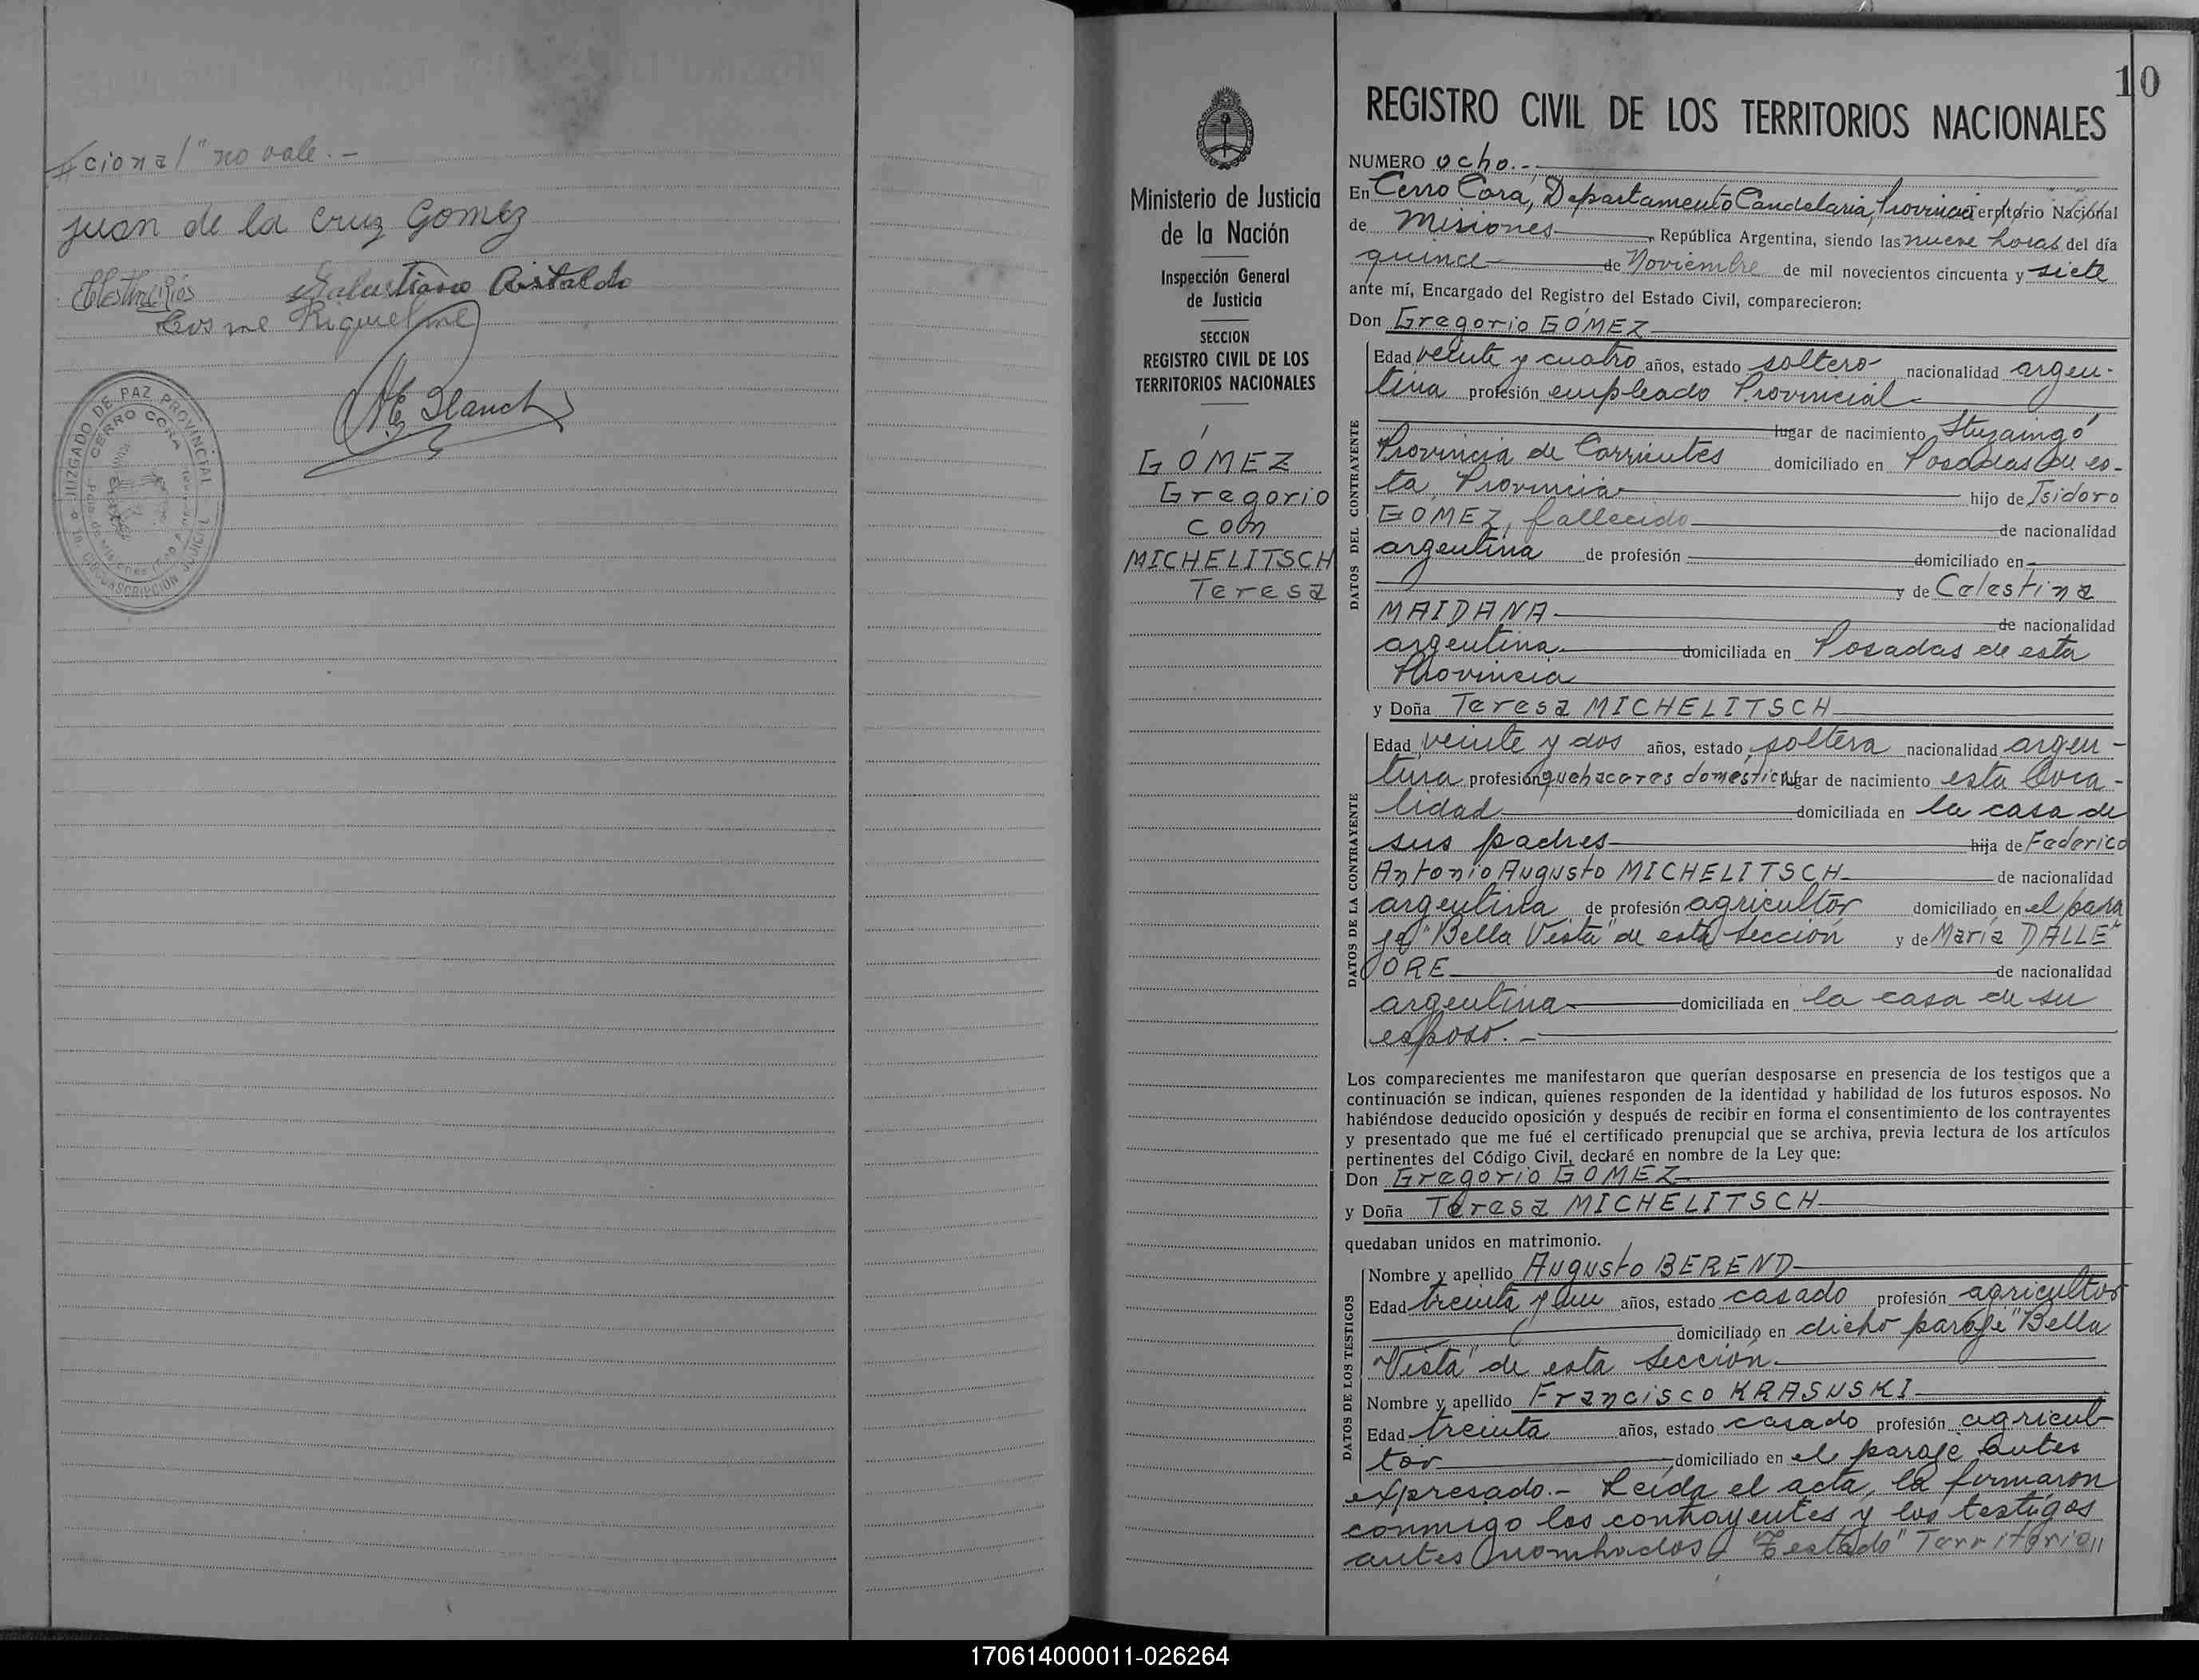 cional" no vale.-
Juan de la Cruz Gomez
Celestino Rios Salustiano Ristaldo
Cosme Riquelme
JUZGADO DE PAZ PROVINCIAL
CERRO CORA
CIRCUNSCRIPCION JUDICIAL
10
Ministerio de Justicia
de la Nación
Inspección General
de Justicia
SECCION
REGISTRO CIVIL DE LOS
TERRITORIOS NACIONALES
GÓMEZ
Gregorio
con
MICHELITSCH
Teresa
REGISTRO CIVIL DE LOS TERRITORIOS NACIONALES
NUMERO ocho.-
En Cerro Corá, Departamento Candelaria, Provincia Territorio Nacional
de Misiones República Argentina, siendo las nueve horas del día
quince de Noviembre de mil novecientos cincuenta y siete
ante mí, Encargado del Registro del Estado Civil, comparecieron:
Don Gregorio GÓMEZ
DATOS DEL CONTRAYENTE
Edad veinte y cuatro años, estado soltero nacionalidad argen-
tina profesión empleado Provincial
lugar de nacimiento Ituzaingó
Provincia de Corrientes domiciliado en Posadas de es-
ta Provincia hijo de Isidoro
GOMEZ, fallecido de nacionalidad
argentina de profesión domiciliado en
y de Celestina
MAIDANA de nacionalidad
argentina domiciliada en Posadas de esta
Provincia
y Doña Teresa MICHELITSCH
DATOS DE LA CONTRAYENTE
Edad veinte y dos años, estado soltera nacionalidad argen-
tina profesión quehaceres domésticos lugar de nacimiento esta loca-
lidad domiciliada en la casa de
sus padres hija de Federico
Antonio Augusto MICHELITSCH de nacionalidad
argentina de profesión agricultor domiciliado en el para
je "Bella Vista" de esta sección y de María DALLE"
ORE de nacionalidad
argentina domiciliada en la casa de su
esposo.-
Los comparecientes me manifestaron que querían desposarse en presencia de los testigos que a
continuación se indican, quienes responden de la identidad y habilidad de los futuros esposos. No
habiéndose deducido oposición y después de recibir en forma el consentimiento de los contrayentes
y presentado que me fué el certificado prenupcial que se archiva, previa lectura de los artículos
pertinentes del Código Civil, declaré en nombre de la Ley que:
Don Gregorio GOMEZ
y Doña Teresa MICHELITSCH
quedaban unidos en matrimonio.
DATOS DE LOS TESTIGOS
Nombre y apellido Augusto BEREND
Edad treinta y un años, estado casado profesión agricultor
domiciliado en dicho paraje "Bella
Vista" de esta sección.
Nombre y apellido Francisco KRASUSKI
Edad treinta años, estado casado profesión agricul-
tor domiciliado en el paraje antes
expresado.- Leída el acta, la firmaron
conmigo los contrayentes y los testigos
antes nombrados "Testado" Territorio"
170614000011-026264